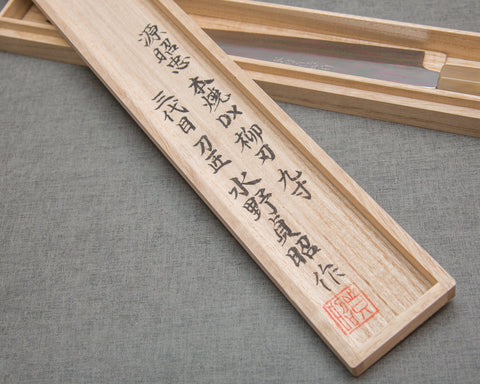 源昭忠 本焼DX柳刃 九寸
三代目 刀匠 水野貞昭 作